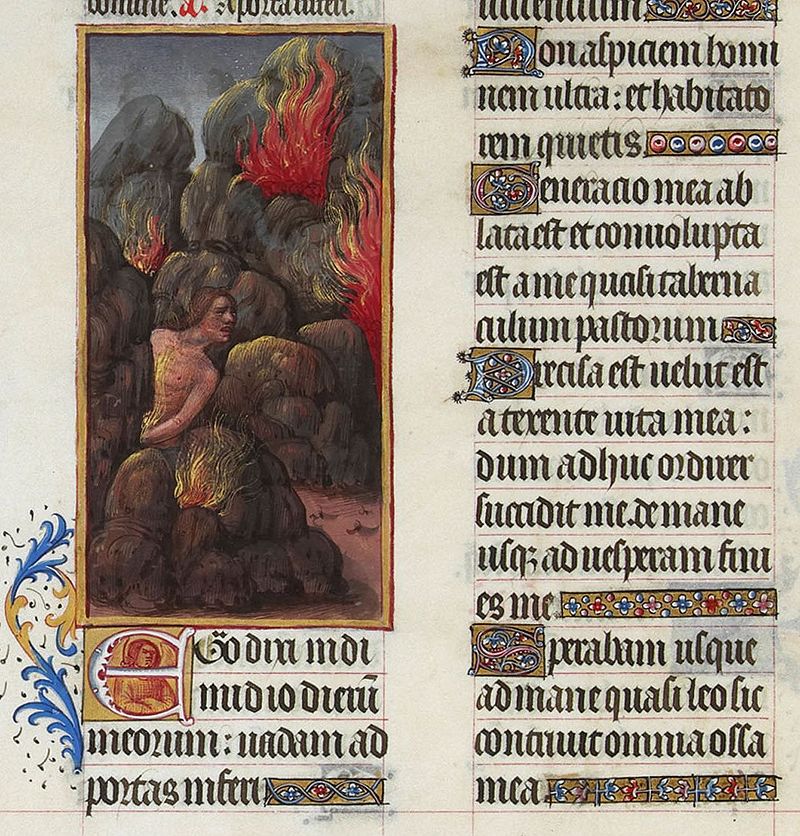 domine. A porta inferi.
Ego dixi in di
midio dierū
meorum : uadam ad
portas inferi
uiuentium
Non aspiciem homi
nem ultra : et habitato
rem quietis.
Generacio mea ab
lata est et conuoluta
est a me quasi taberna
culum pastorum
Precisa est uelut est
a texente uita mea :
dum adhuc ordirer
succidit me. de mane
usq; ad uesperam fini
es me
Sperabam usque
ad mane quasi leo sic
contriuit omnia ossa
mea.